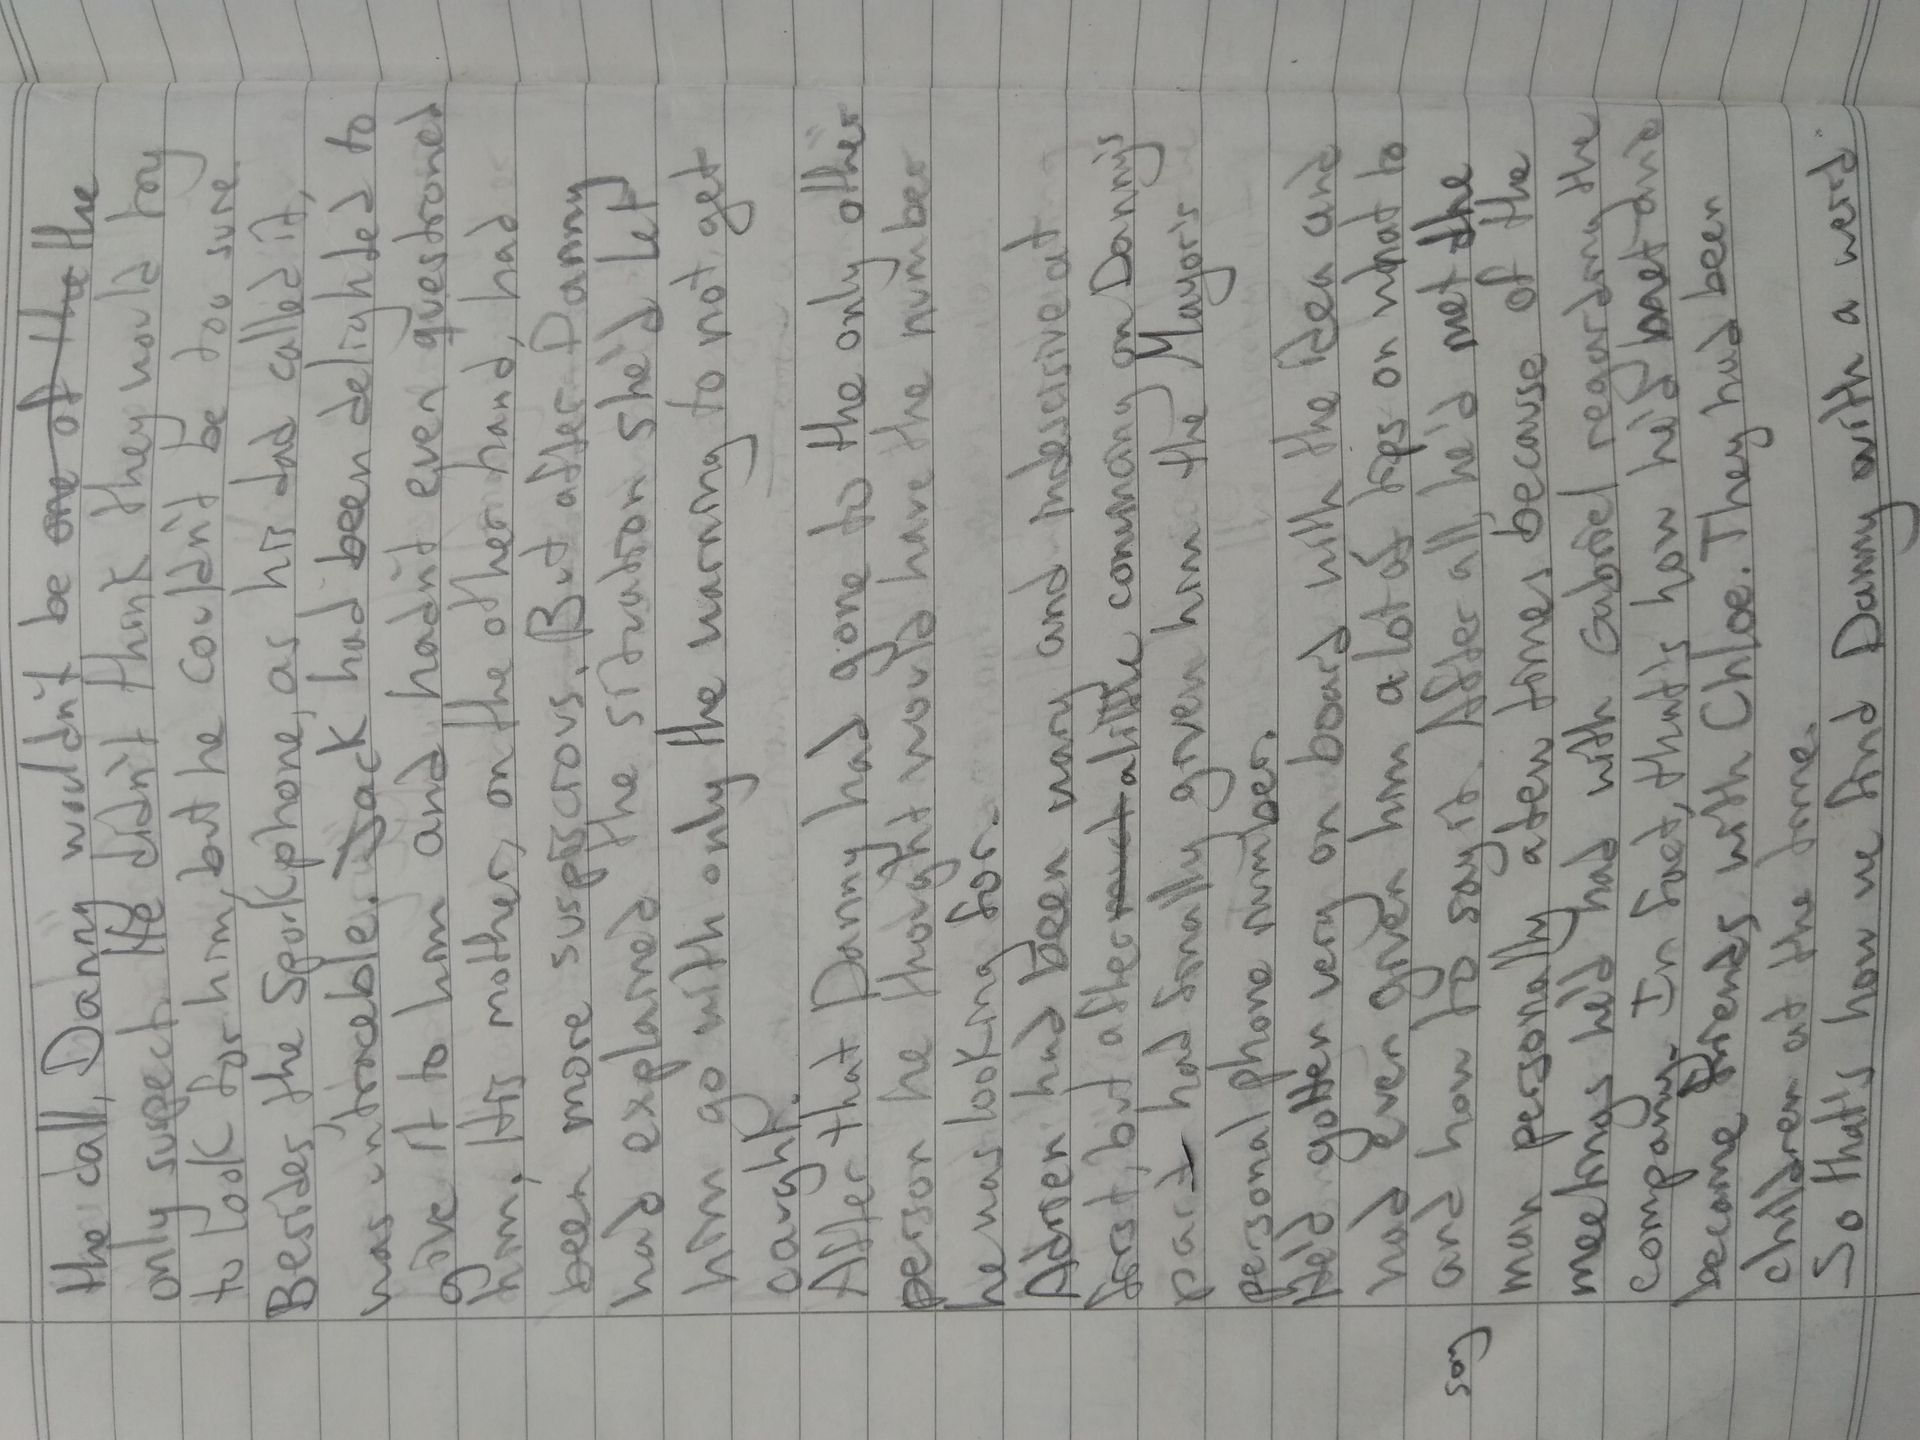 the call, Danny wouldn't be one of the the
only suspect. He didn't think they would try
to look for him, but he couldn't be too sure.
Besides the Spork phone, as his dad called it,
was untraceble. Jack had been delighted to
give it to him and hadn't even questioned
him. His mother, on the other hand, had
been more suspiscious. But after Danny
had explained the situation she'd let
him go with only the warning to not get
caught.
After that Danny had gone to the only other
person he thought would have the number
he was looking for.
Adrien had been wary and indescisive at
first, but after a little convining on Danny's
part had finally given him the Mayor's
personal phone number.
He'd gotten very on board with the idea and
had even given him a lot of tips on what to
say and how to say it. After all, he'd met the
man personally a ten times because of the
meetings he'd had with Gabriel regarding the
company. In fact, that's how he'd met and
become friends with Chloe. They had been
children at the time.
So that's how we find Danny with a werd